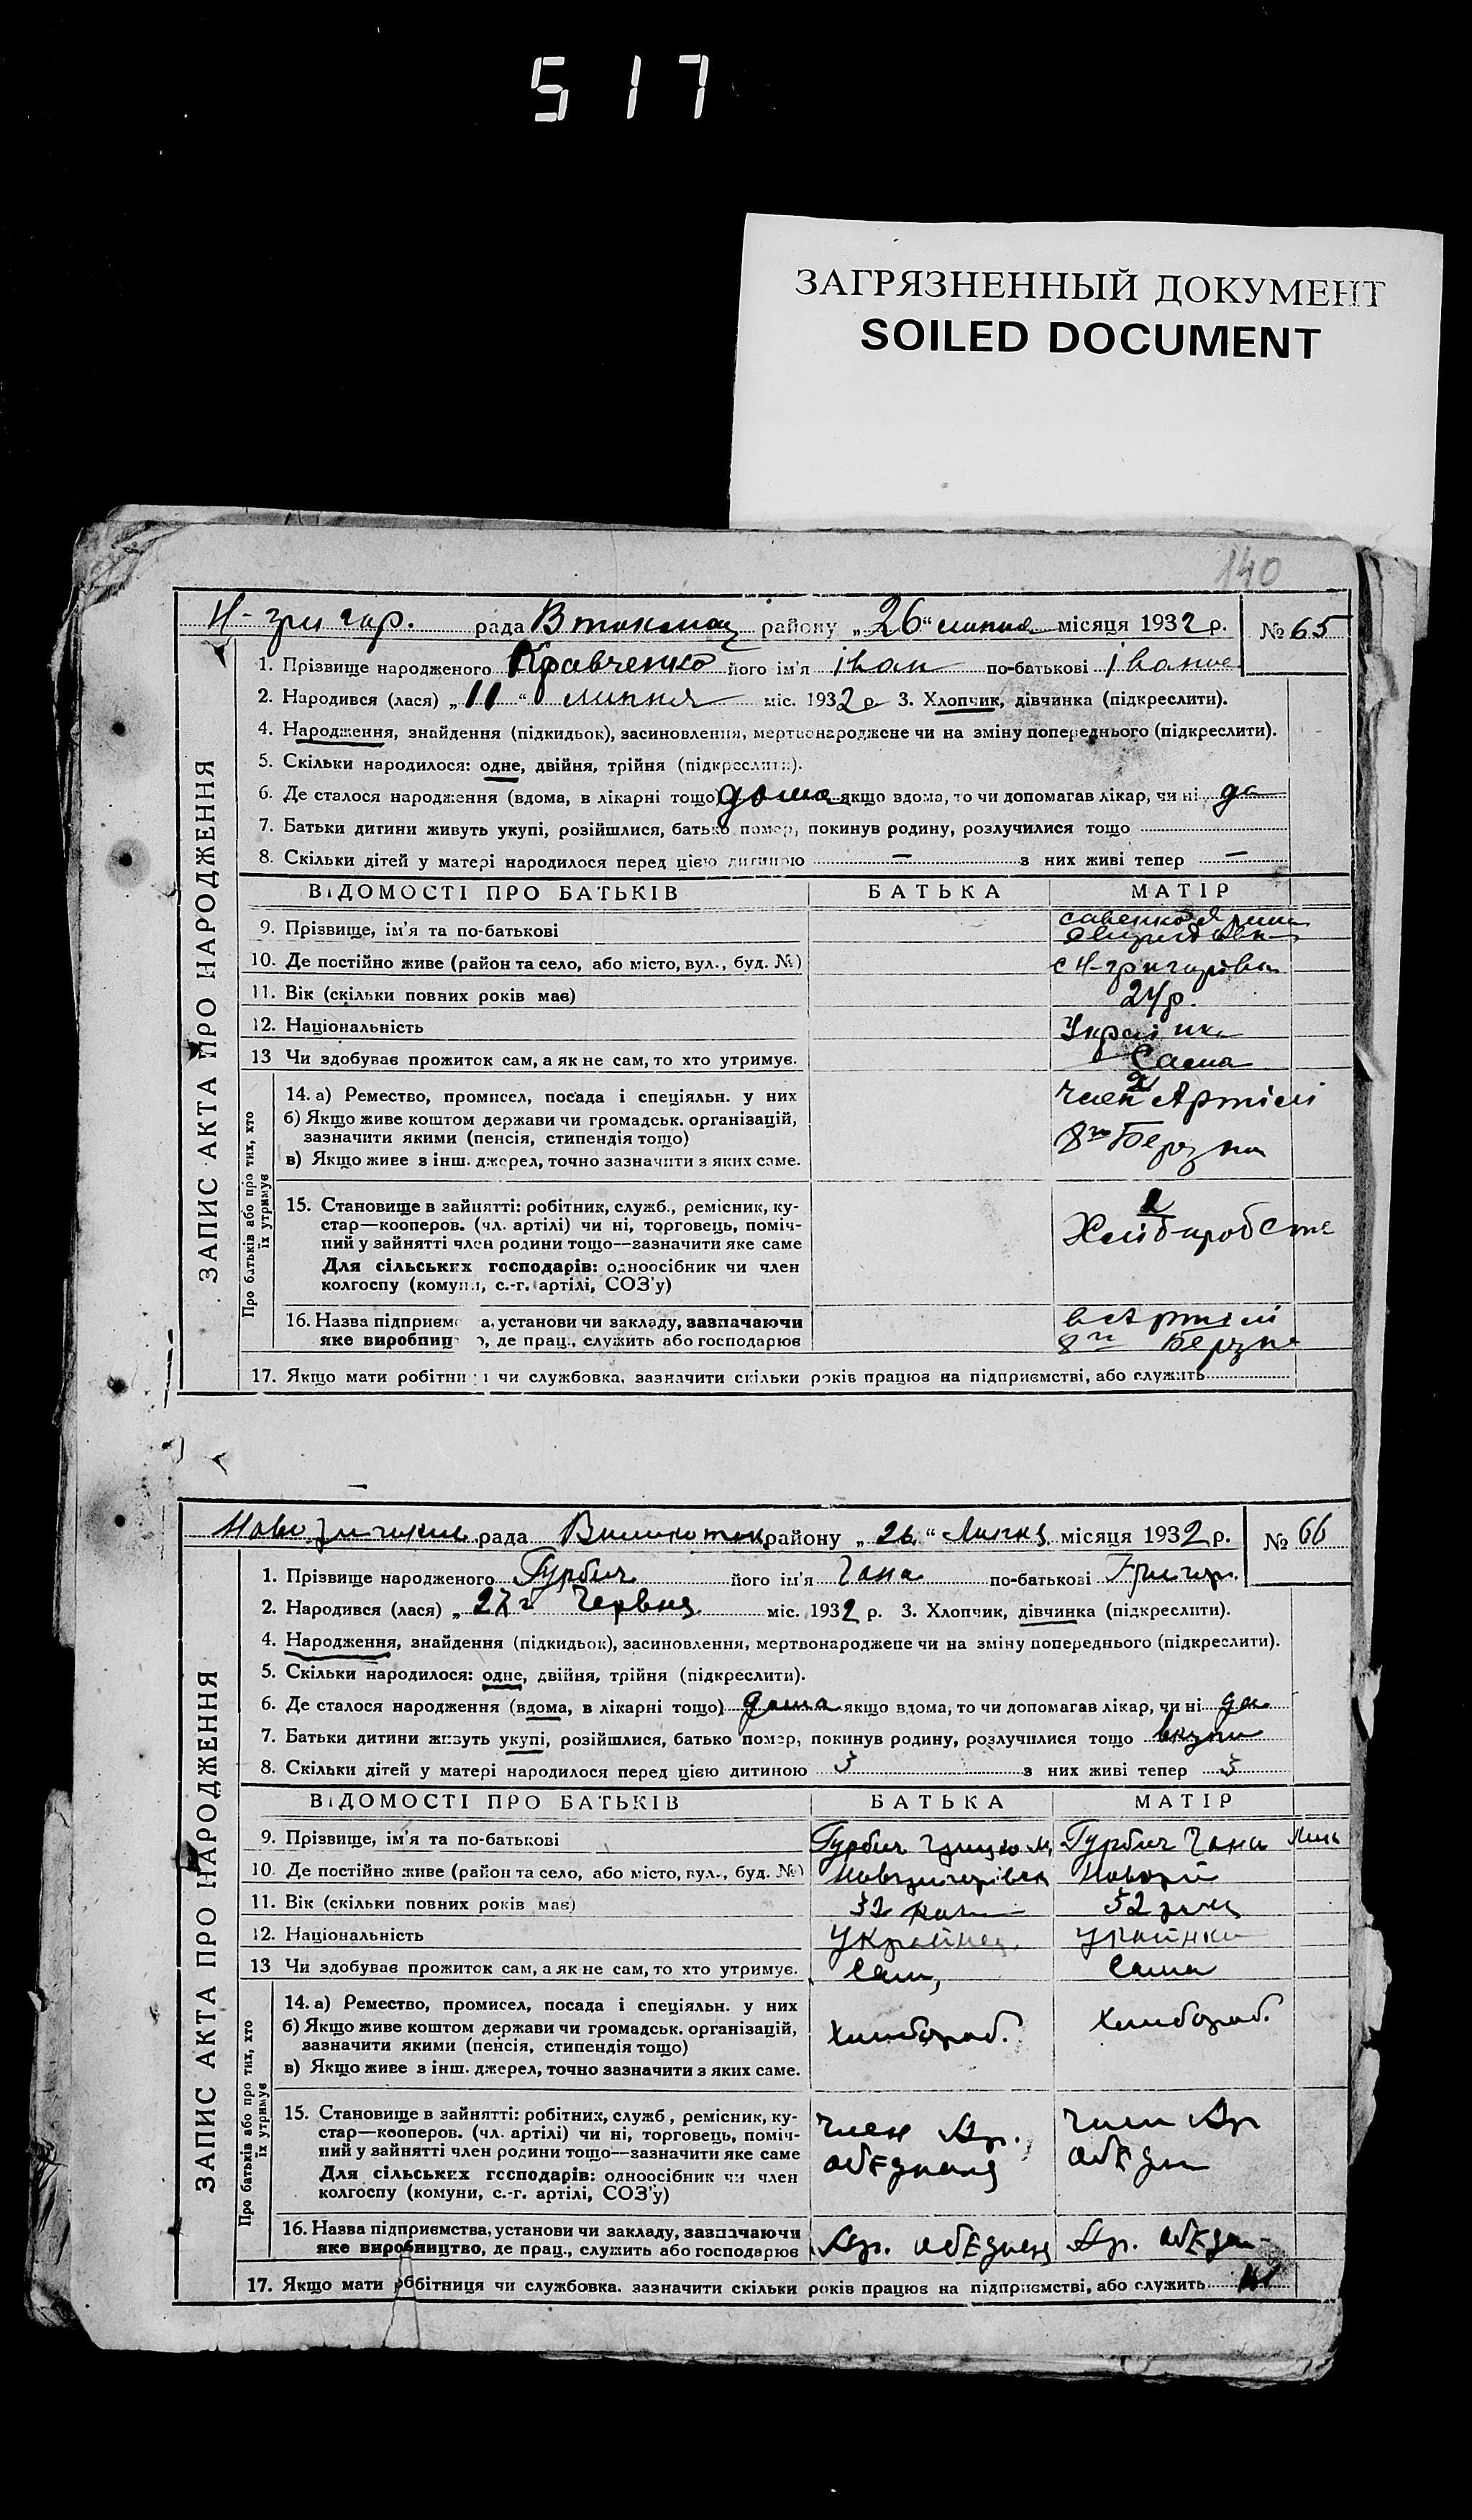 517
ЗАГРЯЗНЕННЫЙ ДОКУМЕНТ
SOILED DOCUMENT
140
Н-григор. рада В токмац району „26“ липня місяця 1932 р. № 65
ЗАПИС АКТА ПРО НАРОДЖЕННЯ
1. Прізвище народженого Кравченко його ім'я іван по-батькові
2. Народився (лася) „11“ липня міс. 1932 р. 3. Хлопчик, дівчинка (підкреслити).
4. Народження, знайдення (підкидьок), засиновлення, мертвонароджене чи на зміну попереднього (підкреслити).
5. Скільки народилося: одне, двійня, трійня (підкреслити).
6. Де сталося народження (вдома, в лікарні тощо) дома якщо вдома, то чи допомагав лікар, чи ні да
7. Батьки дитини живуть укупі, розійшлися, батько помер, покинув родину, розлучилися тощо
8. Скільки дітей у матері народилося перед цією дитиною — з них живі тепер —
ВІДОМОСТІ ПРО БАТЬКІВ БАТЬКА МАТІР
9. Прізвище, ім'я та по-батькові
10. Де постійно живе (район та село, або місто, вул., буд. №) с Н-григорівка
11. Вік (скільки повних років має) 24 р.
12. Національність Українка
13 Чи здобуває прожиток сам, а як не сам, то хто утримує. Сама
Про батьків або про тих, хто їх утримує
14. а) Ремество, промисел, посада і спеціяльн. у них член Артілі
б) Якщо живе коштом держави чи громадськ. організацій,
зазначити якими (пенсія, стипендія тощо) 8го Берзня
в) Якщо живе з інш. джерел, точно зазначити з яких саме.
15. Становище в зайнятті: робітник, служб., ремісник, ку-
стар—кооперов. (чл. артілі) чи ні, торговець, поміч-
ний у зайнятті член родини тощо—зазначити яке саме
Для сільських господарів: одноосібник чи член
колгоспу (комуни, с.-г. артілі, СОЗ'у)
16. Назва підприємства, установи чи закладу, зазначаючи в Артілі
яке виробництво, де прац., служить або господарює 8го Берзня
17. Якщо мати робітниця чи службовка, зазначити скільки років працює на підприємстві, або служить
рада району „26“ Липня місяця 1932 р. № 66
ЗАПИС АКТА ПРО НАРОДЖЕННЯ
1. Прізвище народженого Гурбич його ім'я Гана по-батькові Григор.
2. Народився (лася) „27го Червня міс. 1932 р. 3. Хлопчик, дівчинка (підкреслити).
4. Народження, знайдення (підкидьок), засиновлення, мертвонароджене чи на зміну попереднього (підкреслити).
5. Скільки народилося: одне, двійня, трійня (підкреслити).
6. Де сталося народження (вдома, в лікарні тощо) дома якщо вдома, то чи допомагав лікар, чи ні да
7. Батьки дитини живуть укупі, розійшлися, батько помер, покинув родину, розлучилися тощо вкупи
8. Скільки дітей у матері народилося перед цією дитиною 3 з них живі тепер 3
ВІДОМОСТІ ПРО БАТЬКІВ БАТЬКА МАТІР
9. Прізвище, ім'я та по-батькові Гурбич Грицко М. Гурбич Гана
10. Де постійно живе (район та село, або місто, вул., буд. №) Новгригорівка
11. Вік (скільки повних років має) 32 32 роки
12. Національність Українец. Українки
13 Чи здобуває прожиток сам, а як не сам, то хто утримує. Сам, Сама
Про батьків або про тих, хто їх утримує
14. а) Ремество, промисел, посада і спеціяльн. у них
б) Якщо живе коштом держави чи громадськ. організацій, Хлибороб. Хлибороб.
зазначити якими (пенсія, стипендія тощо)
в) Якщо живе з інш. джерел, точно зазначити з яких саме.
15. Становище в зайнятті: робітник, служб, ремісник, ку- член Ар. член Ар
стар—кооперов. (чл. артілі) чи ні, торговець, поміч-
ний у зайнятті член родини тощо—зазначити яке саме обєднаня обєдн
Для сільських господарів: одноосібник чи член
колгоспу (комуни, с.-г. артілі, СОЗ'у)
16. Назва підприємства, установи чи закладу, зазначаючи
яке виробництво, де прац., служить або господарює Ар. обєднаня Ар. обєдн
17. Якщо мати робітниця чи службовка. зазначити скільки років працює на підприємстві, або служить